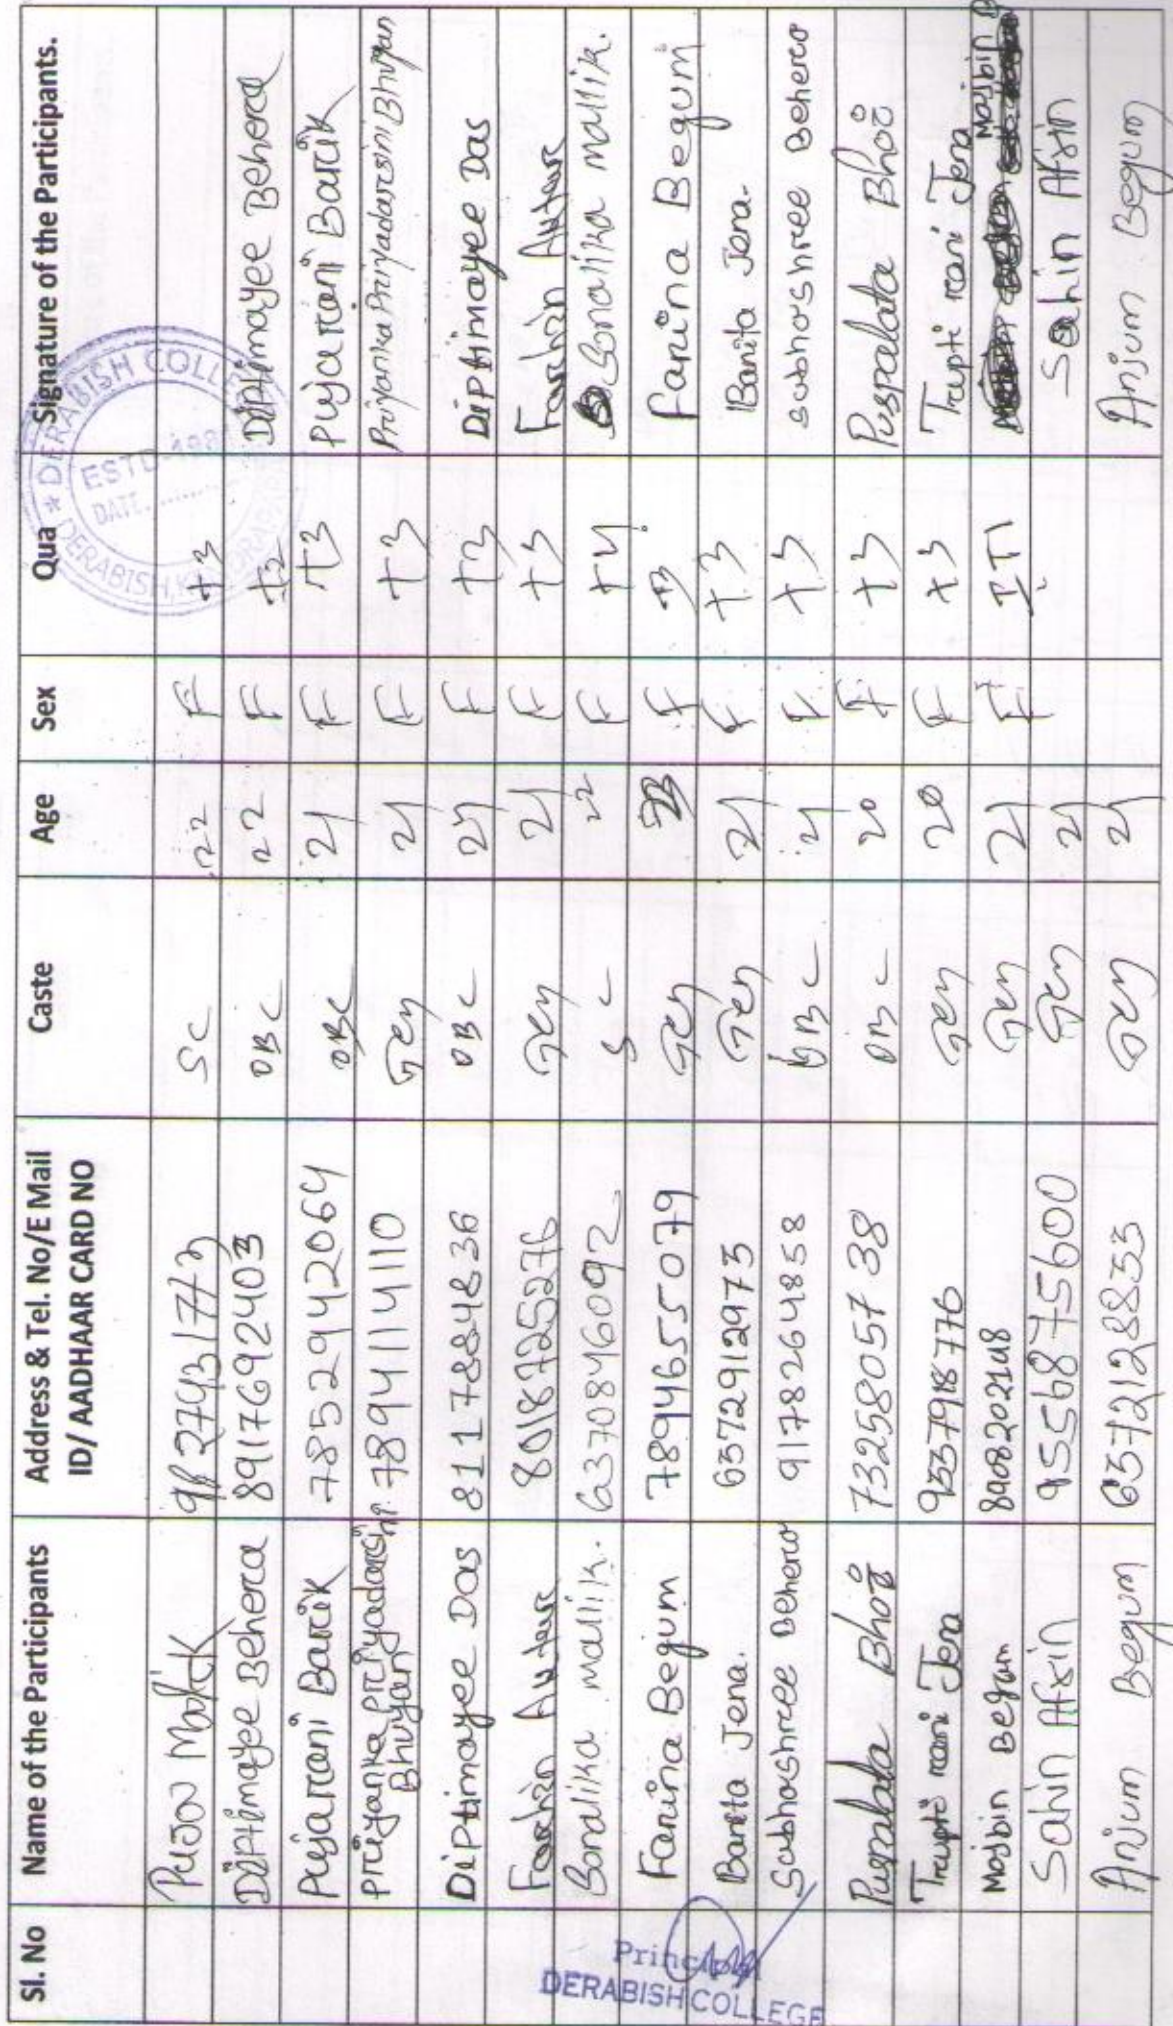 Sl. No Name of the Participants Address & Tel. No/E Mail ID/ AADHAAR CARD NO Caste Age Sex Qua Signature of the Participants.
SC 22 F +3
Diptimayee Behera 8917692403 OBC 22 F +2 Diptimayee Behera
Pujarani Barik 7852942064 OBC 21 F +3 Pujarani Barik
Priyanka Priyadarsini Bhuyan 7894114110 Gen 21 F +3 Priyanka Priyadarsini Bhuyan
Diptimayee Das 8117884836 OBC 21 F +3 Diptimayee Das
8018725276 Gen 21 F +3
Sonalika mallik. 6370846092 SC 22 F +4 Sonalika mallik.
Farina Begum 7894655079 Gen F +3 Farina Begum
Banita Jena. 6372912973 Gen 21 F +3 Banita Jena.
Subhashree Behera 9178264858 OBC 21 F +3 Subhashree Behera
Puspalata Bhoi 7325805738 OBC 20 F +3 Puspalata Bhoi
Trupti rani Jena 9337918776 Gen 20 F +3 Trupti rani Jena
Mojbin Begum 8908202148 Gen 21 F ITI Mojbin B
Sahin Afsin 9556875600 Gen 21 Sahin Afsin
Anjum Begum 6372128833 Gen 21 Anjum Begum
DERABISH COLLEGE
ESTD-198
DATE
DERABISH,
Principal
DERABISH COLLEGE